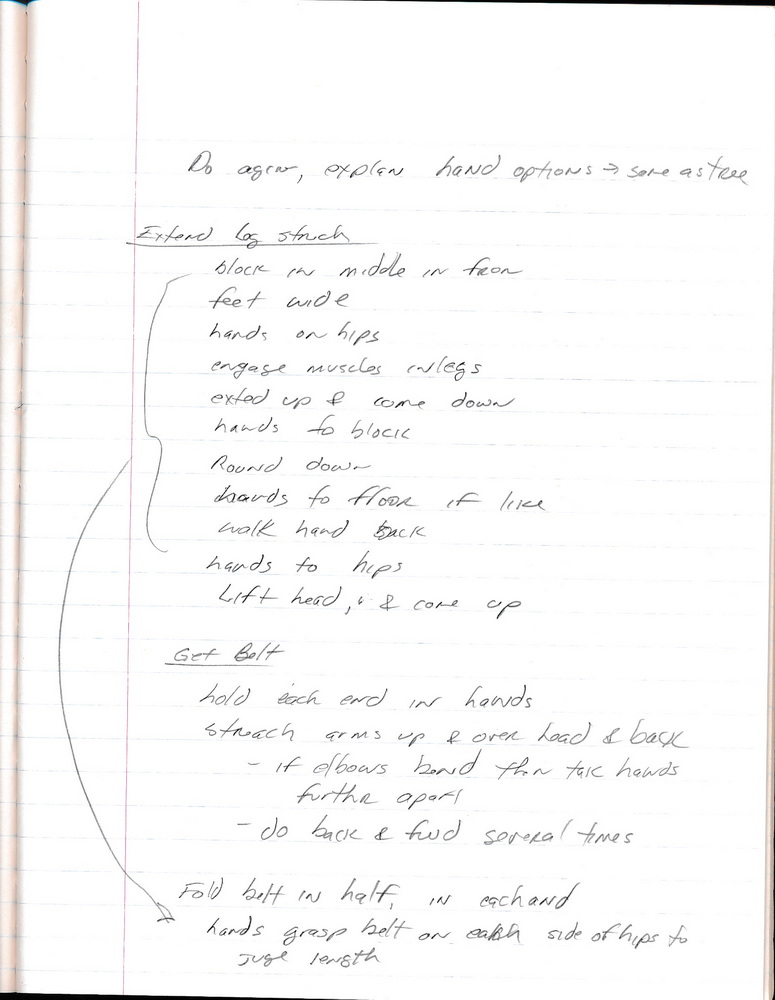 Do agin, explan hand options → same as tree
Extend Leg strech
block in middle in fron
feet wide
hands on hips
engage muscles in legs
exted up & come down
hands to block
Round down
hands to floor if like
walk hand back
hands to hips
Lift head, & come up
Get Belt
hold each end in hands
streach arms up & over head & back
- if elbows bend then take hands
further apart
- do back & fwd several times
Fold belt in half, in eachand
hands grasp belt on each side of hips to
juge length